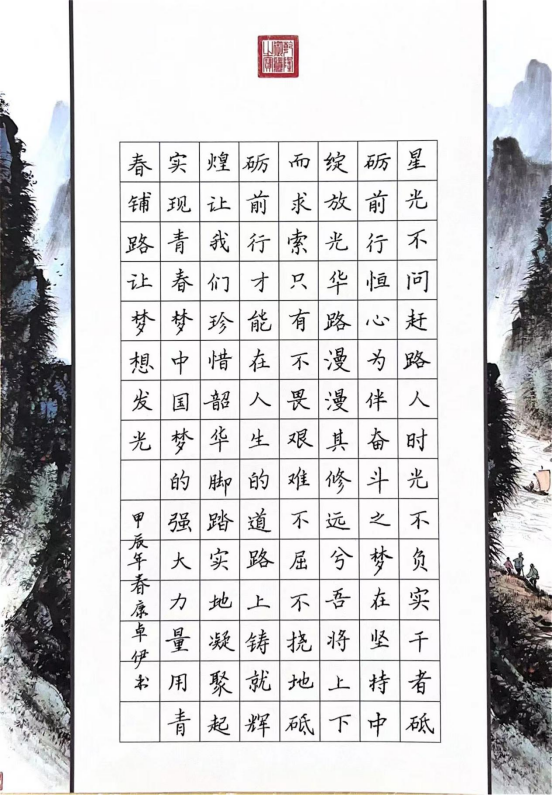 星光不问赶路人时光不负实干者砥
砺前行恒心为伴奋斗之梦在坚持中
绽放光华路漫漫其修远兮吾将上下
而求索只有不畏艰难不屈不挠地砥
砺前行才能在人生的道路上铸就辉
煌让我们珍惜韶华脚踏实地凝聚起
实现青春梦中国梦的强大力量用青
春铺路让梦想发光
甲辰年春康卓伊书